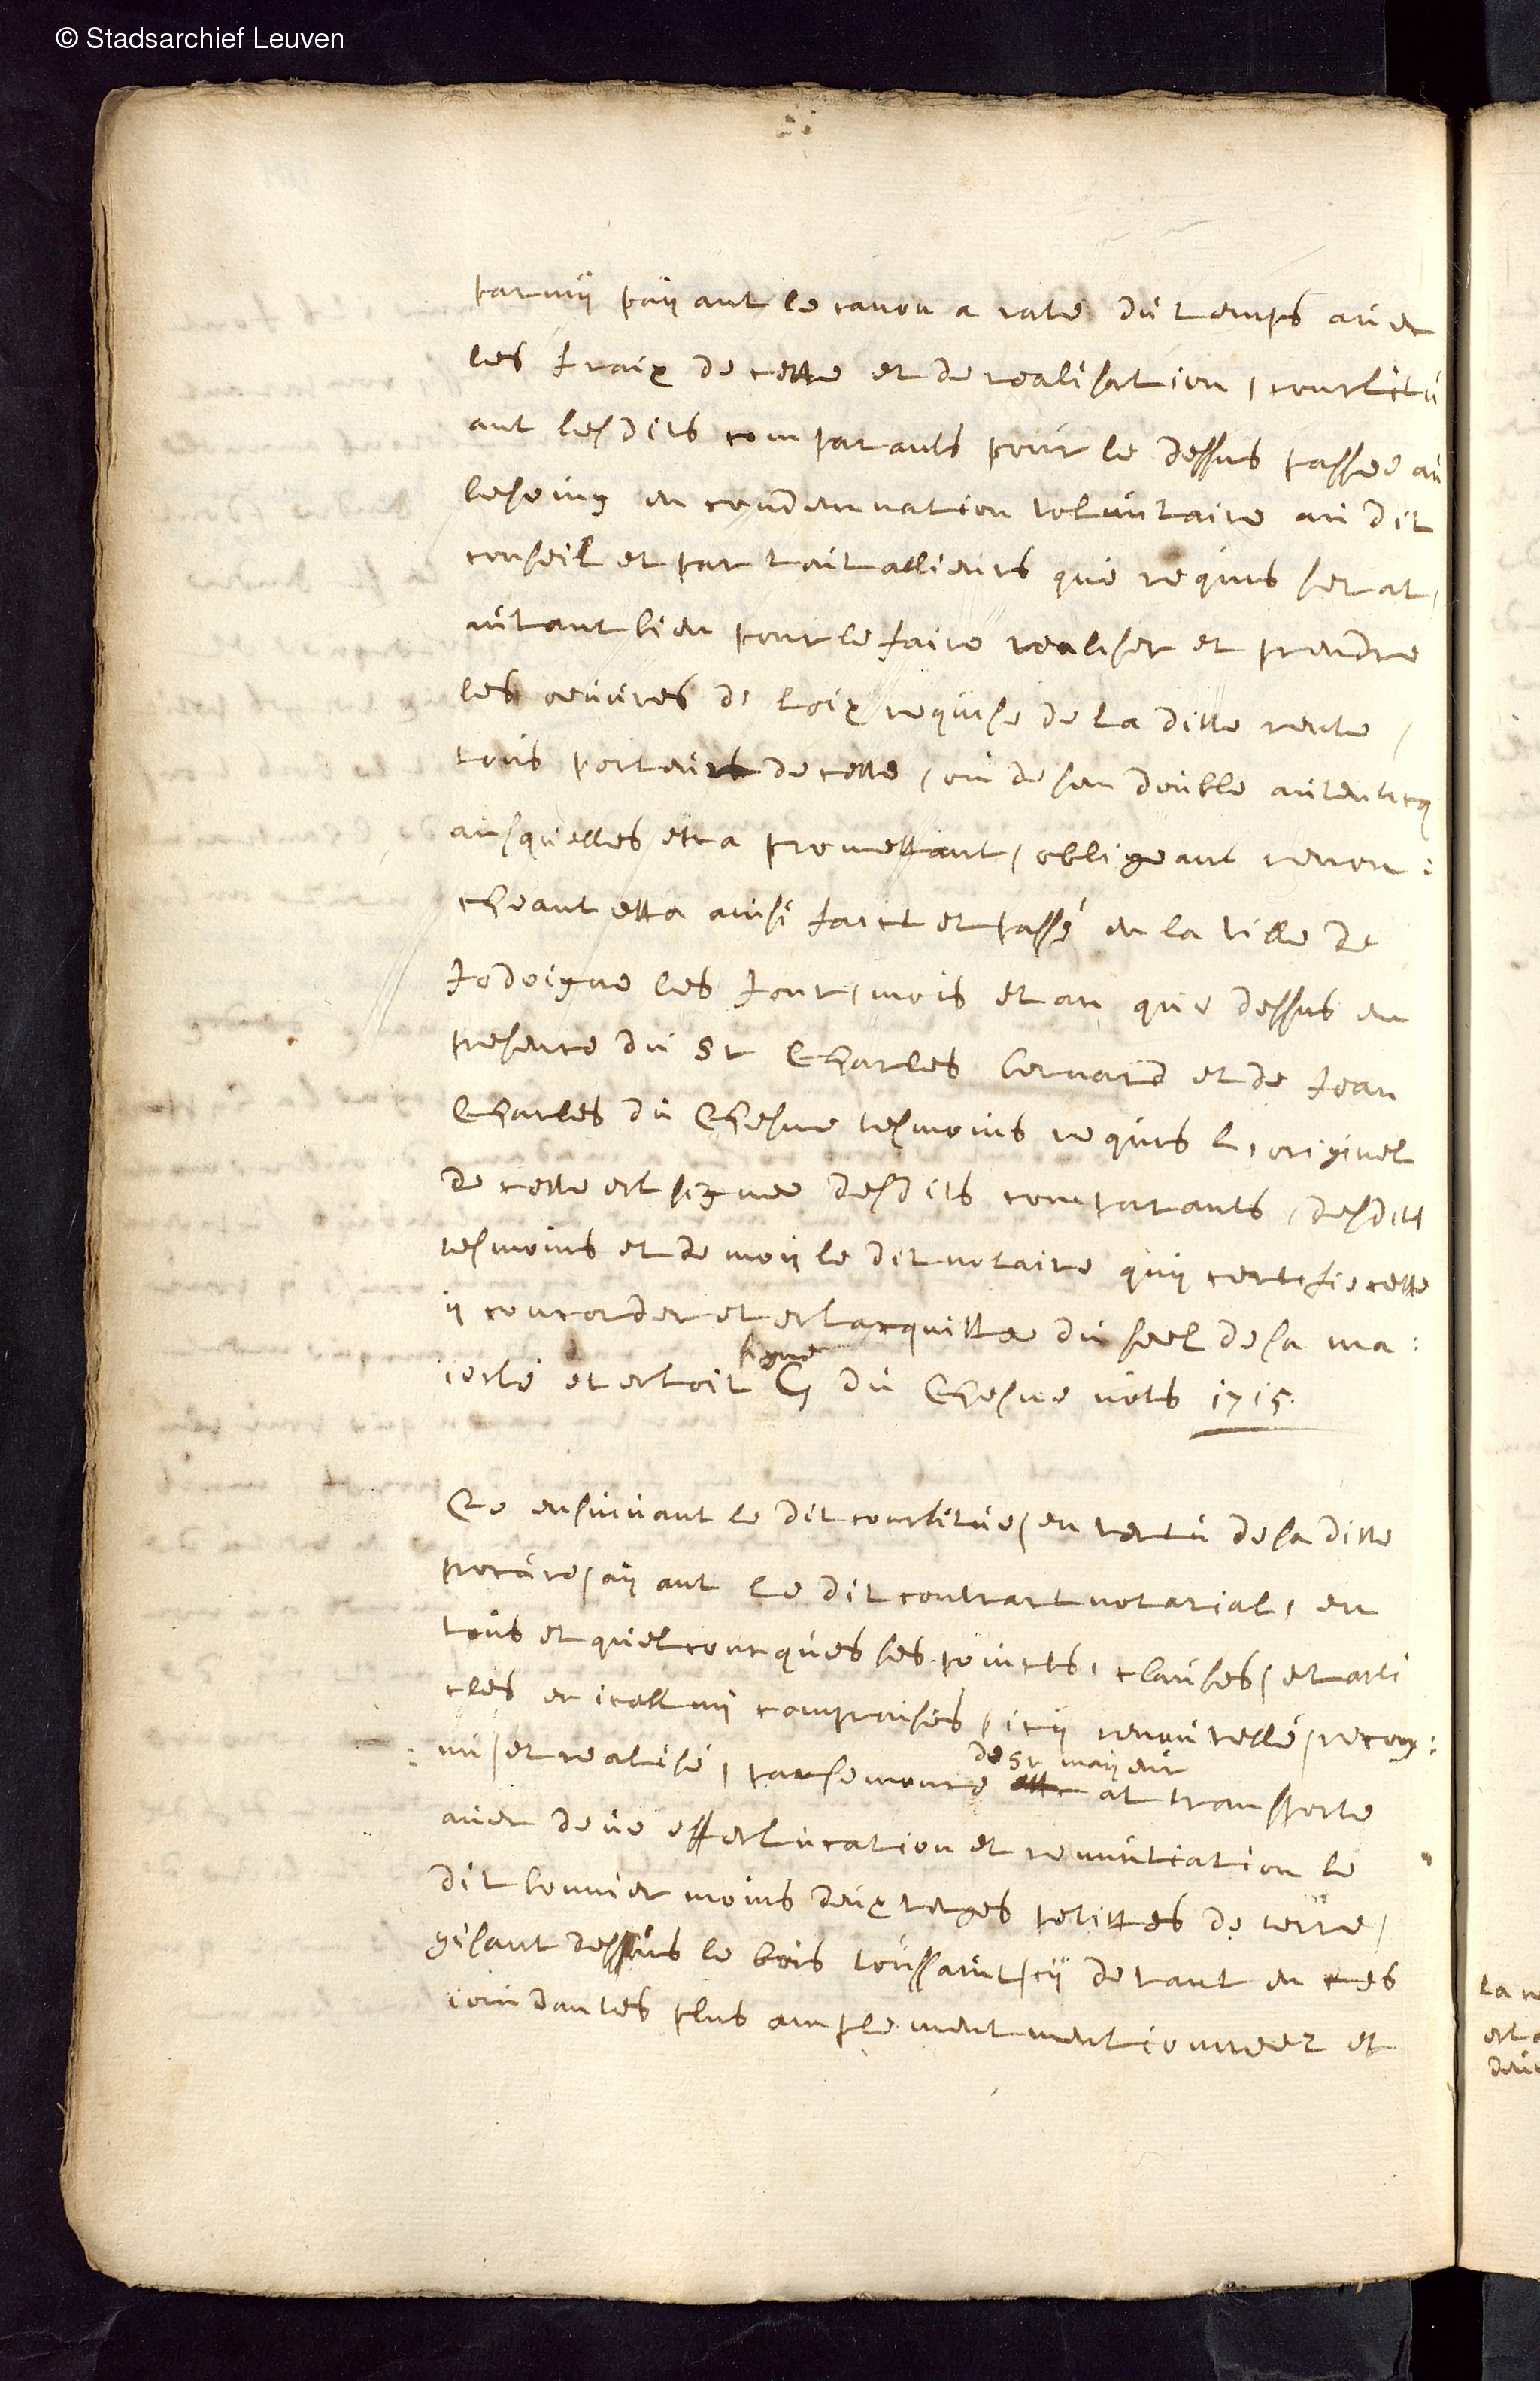 © Stadsarchief Leuven
parmij paijant le canon a rate du temps avec
les fraix de cette et de realisation, constitu
ant lesdits comparants pour le dessus passée au
besoing en condemnation voluntaire au dit
conseil et par tout allieurs que requis serat,
autant bien pour le faire realiser et prendre
les oeuvres de loix requise de la ditte rente,
tous porteurs de cette, ou de son double autenticq
ausquelles etca promettant, obligeant renon:
cheant etca ainsi faict et passé en la ville de
Jodoigne les jour, mois et an que dessus en
presence du Sr Charles bernard et de Jean
Charles du Chesne tesmoins requis l, originel
de cette est signee desdits comparants, desdits
tesmoins et de moij le dit notaire quij certifie cette
ij concorder et est acquittée du seel de sa ma:
iesté et estoit signé G du Chesne nots 1715.
Qe ensuivant le dit constitué, en vertu de sa ditte
procure, aijant le dit contract notarial, en
tous et quelconcques ses poinctes, clauses, et arti
cles en icelluij comprinses, icij renouvellé, recog:
nu, et realisé, par semonce de Sr maijeur at transporte
avec deue effestucation et renuntiation le
dit bonnier moins deux verges petittes de terre,
gisant dessus le bois toussaint, cij devant en ces
joindantes plus amplement mentionneez et
la
est